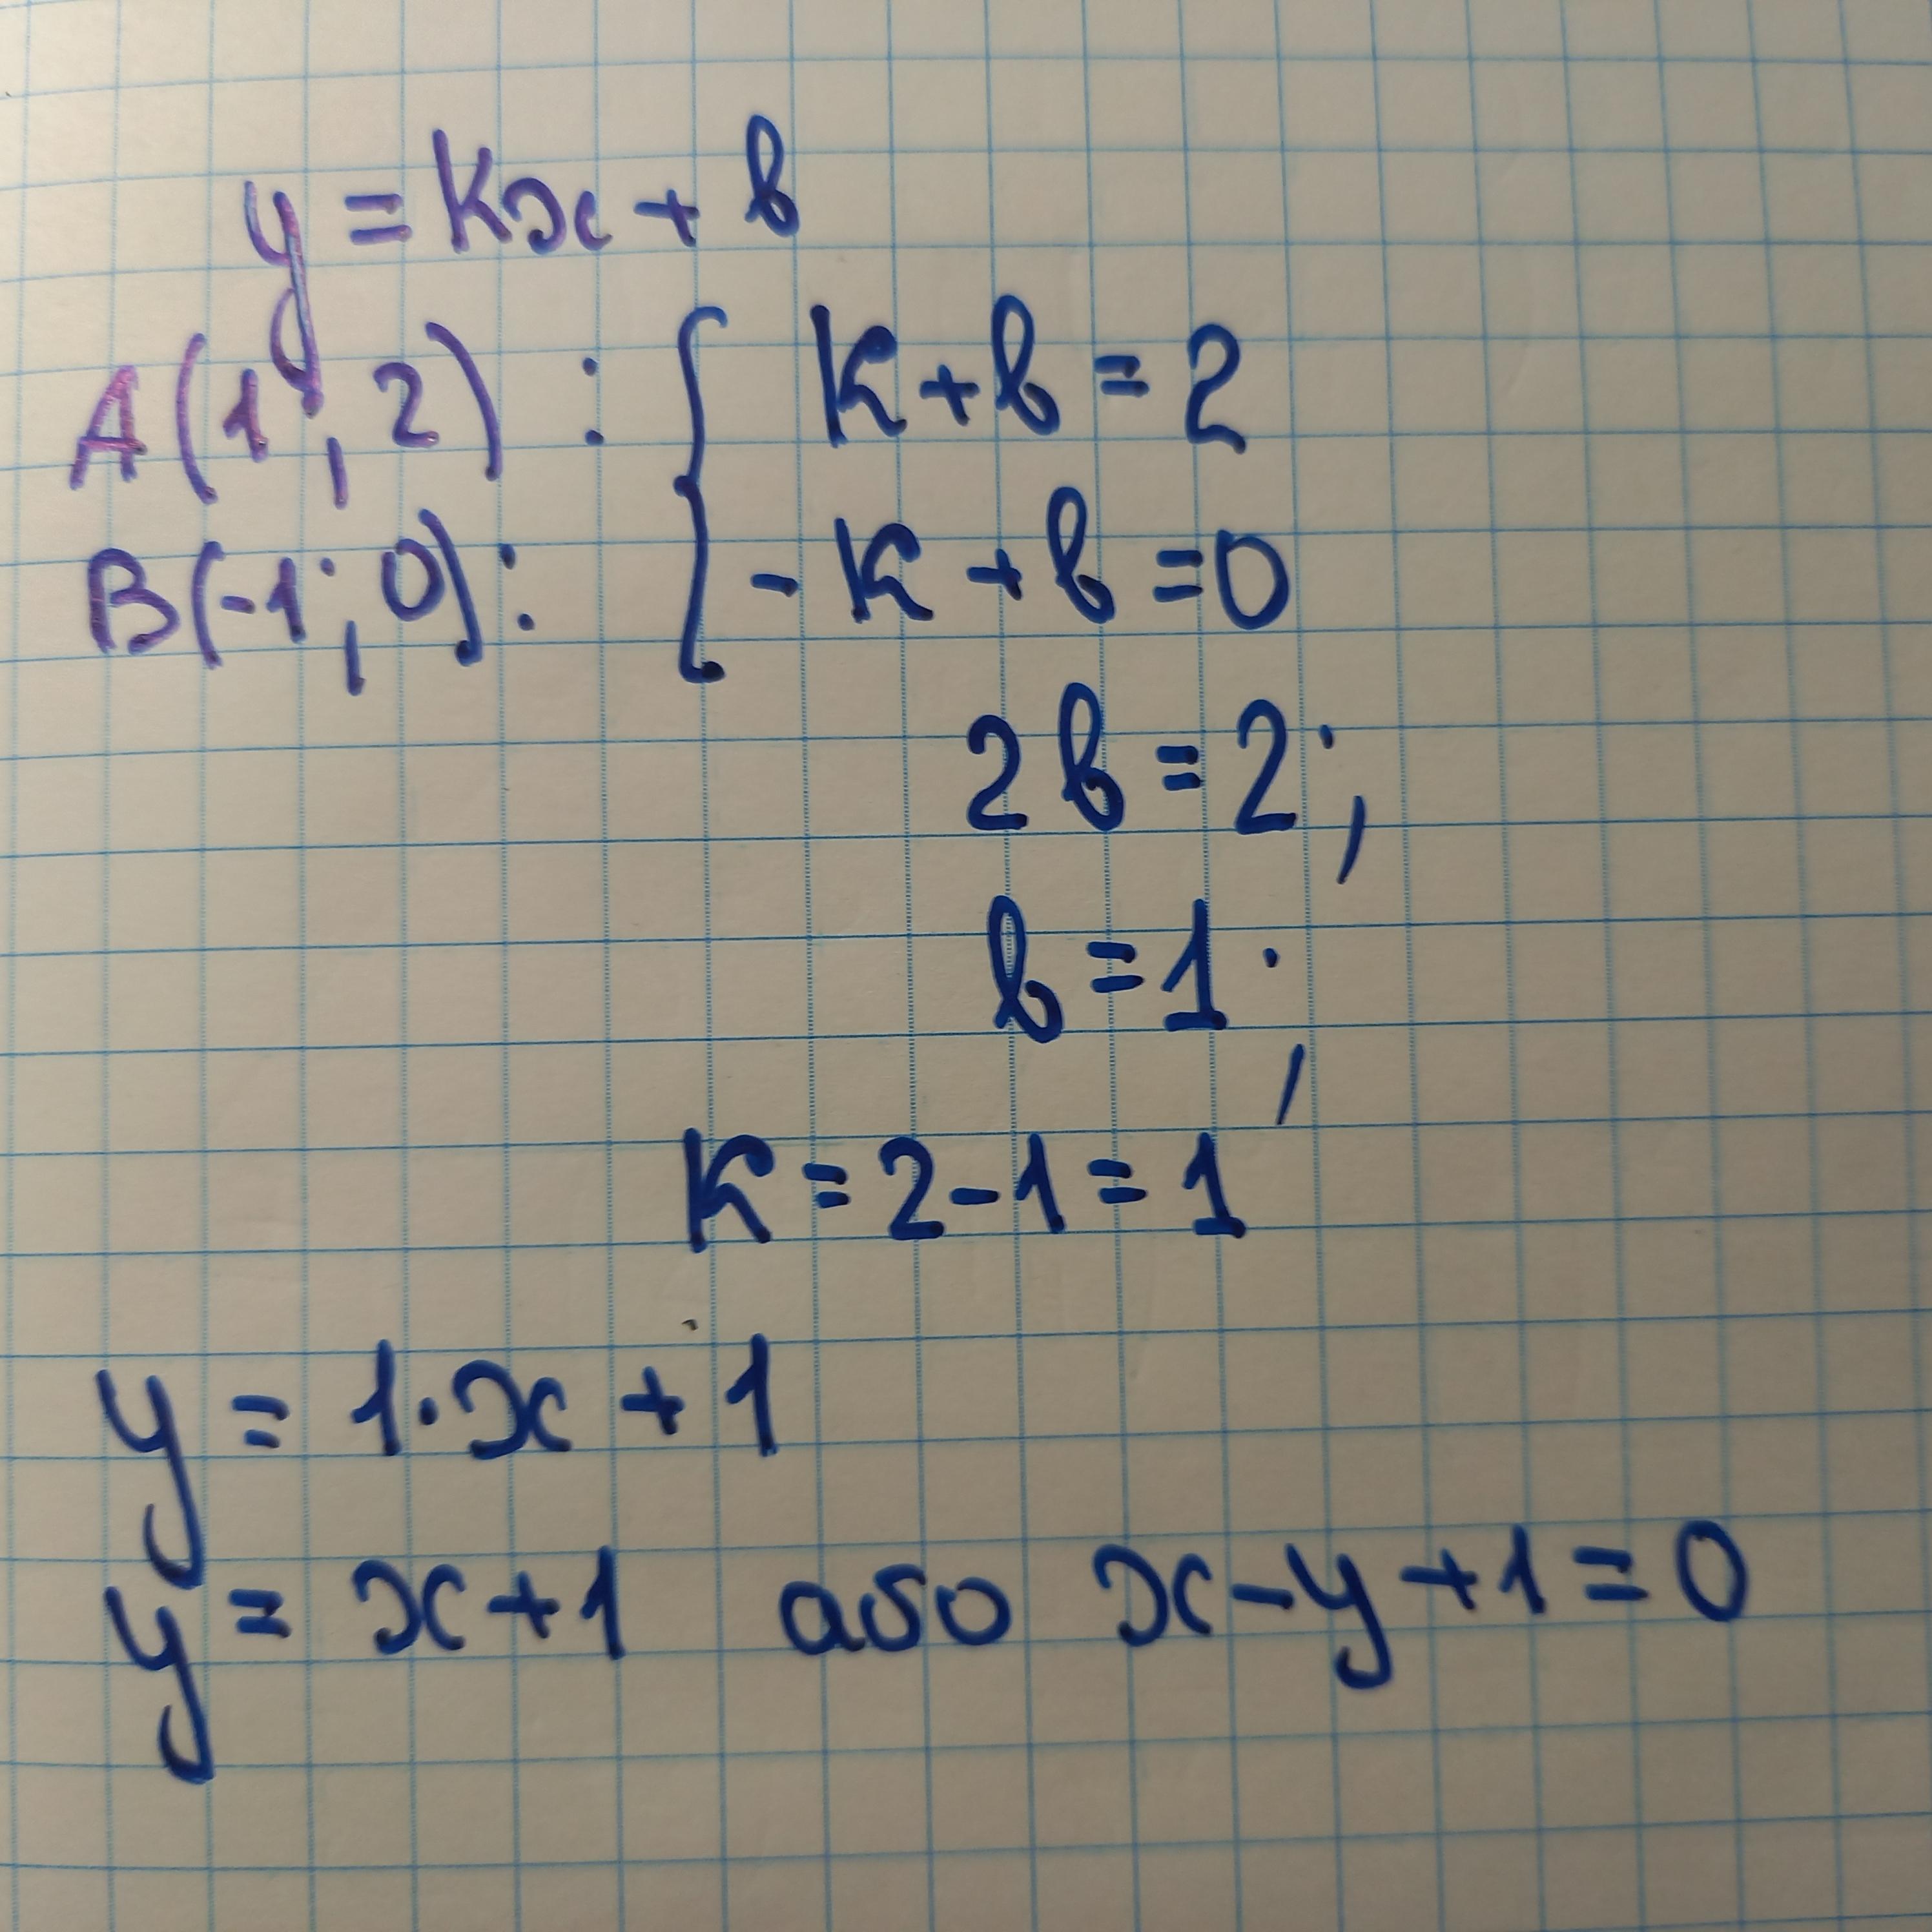 y = kx + b
A(1; 2) : { k + b = 2
B(-1; 0) : - k + b = 0
2b = 2;
b = 1;
k = 2 - 1 = 1
y = 1·x + 1
y = x + 1 або x - y + 1 = 0